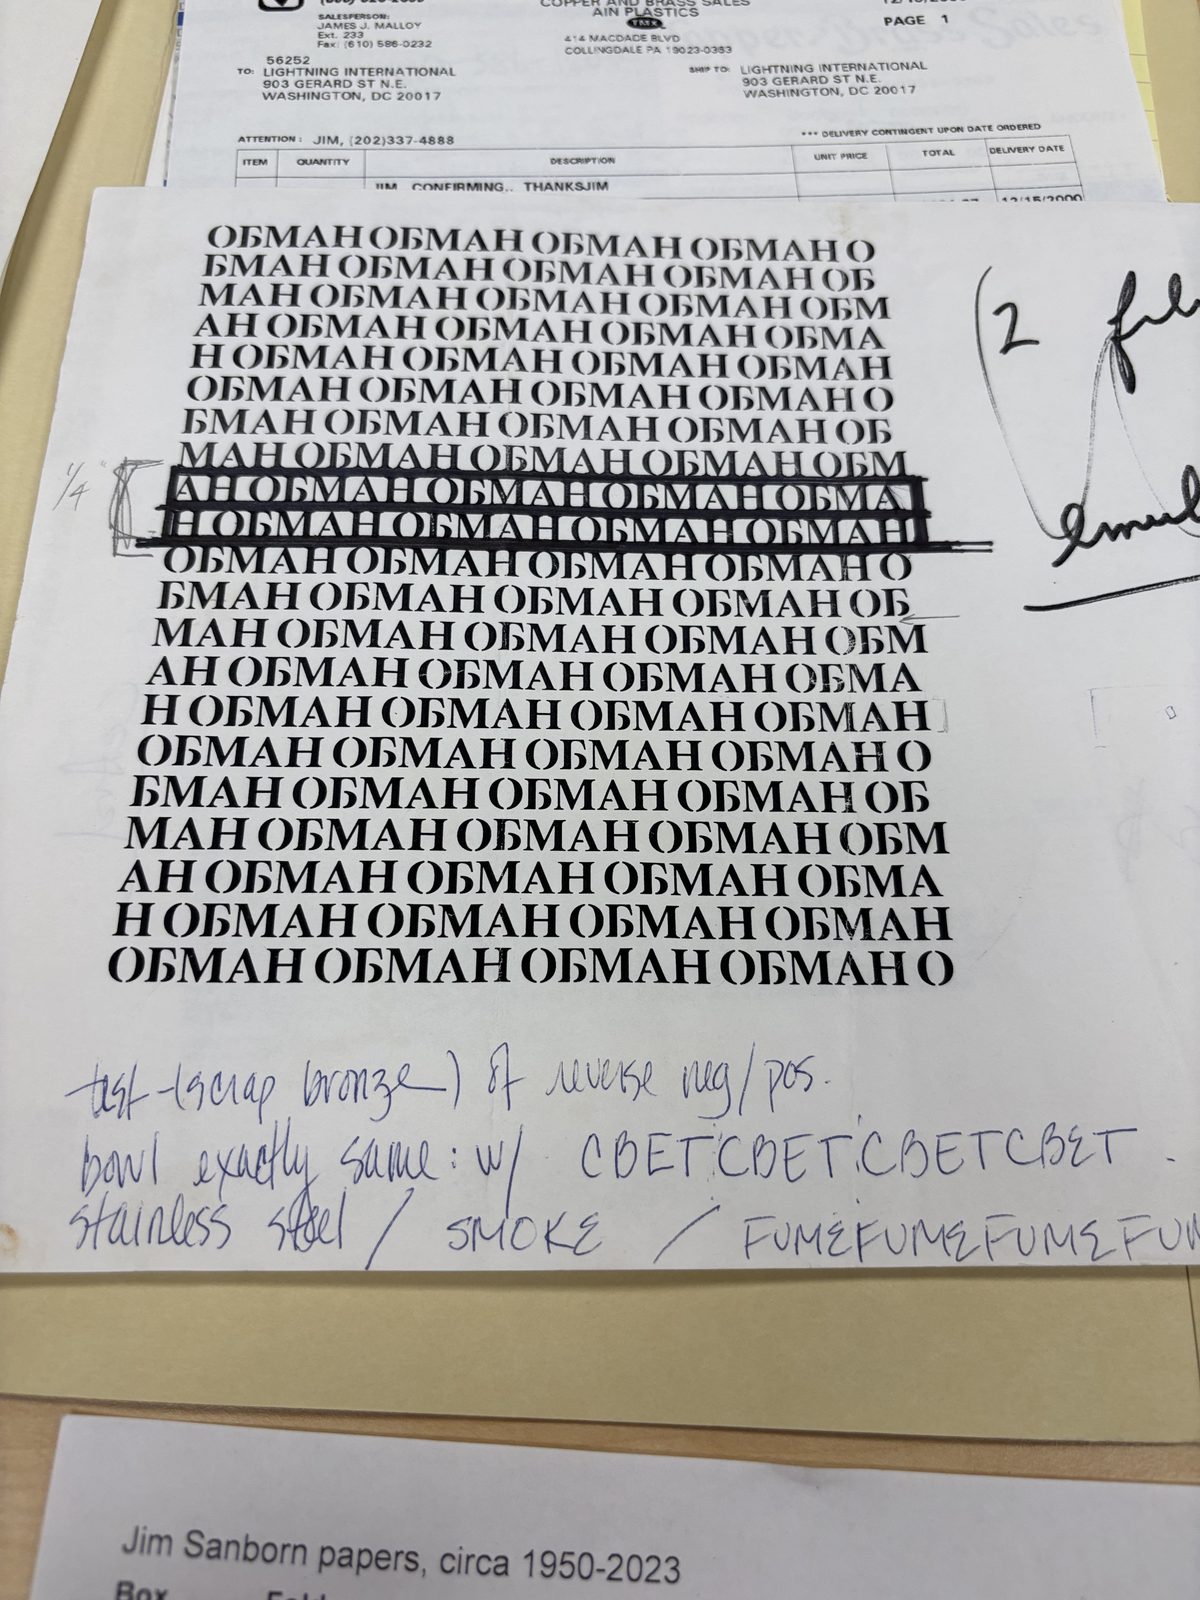 COPPER AND BRASS SALES
AIN PLASTICS
PAGE 1
SALESPERSON:
JAMES J. MALLOY
Ext. 233
Fax: (610) 586-0232
414 MACDADE BLVD
COLLINGDALE PA 19023-0363
56252
TO: LIGHTNING INTERNATIONAL
903 GERARD ST N.E.
WASHINGTON, DC 20017
SHIP TO: LIGHTNING INTERNATIONAL
903 GERARD ST N.E.
WASHINGTON, DC 20017
ATTENTION : JIM, (202)337-4888
*** DELIVERY CONTINGENT UPON DATE ORDERED
ITEM QUANTITY DESCRIPTION UNIT PRICE TOTAL DELIVERY DATE
JIM CONFIRMING.. THANKSJIM
12/15/2000
ОБМАН ОБМАН ОБМАН ОБМАН О
БМАН ОБМАН ОБМАН ОБМАН ОБ
МАН ОБМАН ОБМАН ОБМАН ОБМ
АН ОБМАН ОБМАН ОБМАН ОБМА
Н ОБМАН ОБМАН ОБМАН ОБМАН
ОБМАН ОБМАН ОБМАН ОБМАН О
БМАН ОБМАН ОБМАН ОБМАН ОБ
МАН ОБМАН ОБМАН ОБМАН ОБМ
АН ОБМАН ОБМАН ОБМАН ОБМА
Н ОБМАН ОБМАН ОБМАН ОБМАН
ОБМАН ОБМАН ОБМАН ОБМАН О
БМАН ОБМАН ОБМАН ОБМАН ОБ
МАН ОБМАН ОБМАН ОБМАН ОБМ
АН ОБМАН ОБМАН ОБМАН ОБМА
Н ОБМАН ОБМАН ОБМАН ОБМАН
ОБМАН ОБМАН ОБМАН ОБМАН О
БМАН ОБМАН ОБМАН ОБМАН ОБ
МАН ОБМАН ОБМАН ОБМАН ОБМ
АН ОБМАН ОБМАН ОБМАН ОБМА
Н ОБМАН ОБМАН ОБМАН ОБМАН
ОБМАН ОБМАН ОБМАН ОБМАН О
1/4"
2
test (scrap bronze) of reverse neg/pos.
bowl exactly same: w/ СВЕТСВЕТСВЕТСВЕТ
stainless steel / SMOKE / FUMEFUMEFUMEFUM
Jim Sanborn papers, circa 1950-2023
Box